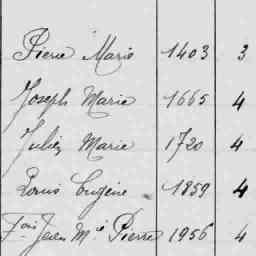 Pierre Marie 1403 3
Joseph Marie 1665 4
Julien Marie 1720 4
Louis Eugène 1859 4
Fois Jean Mie Pierre 1956 4